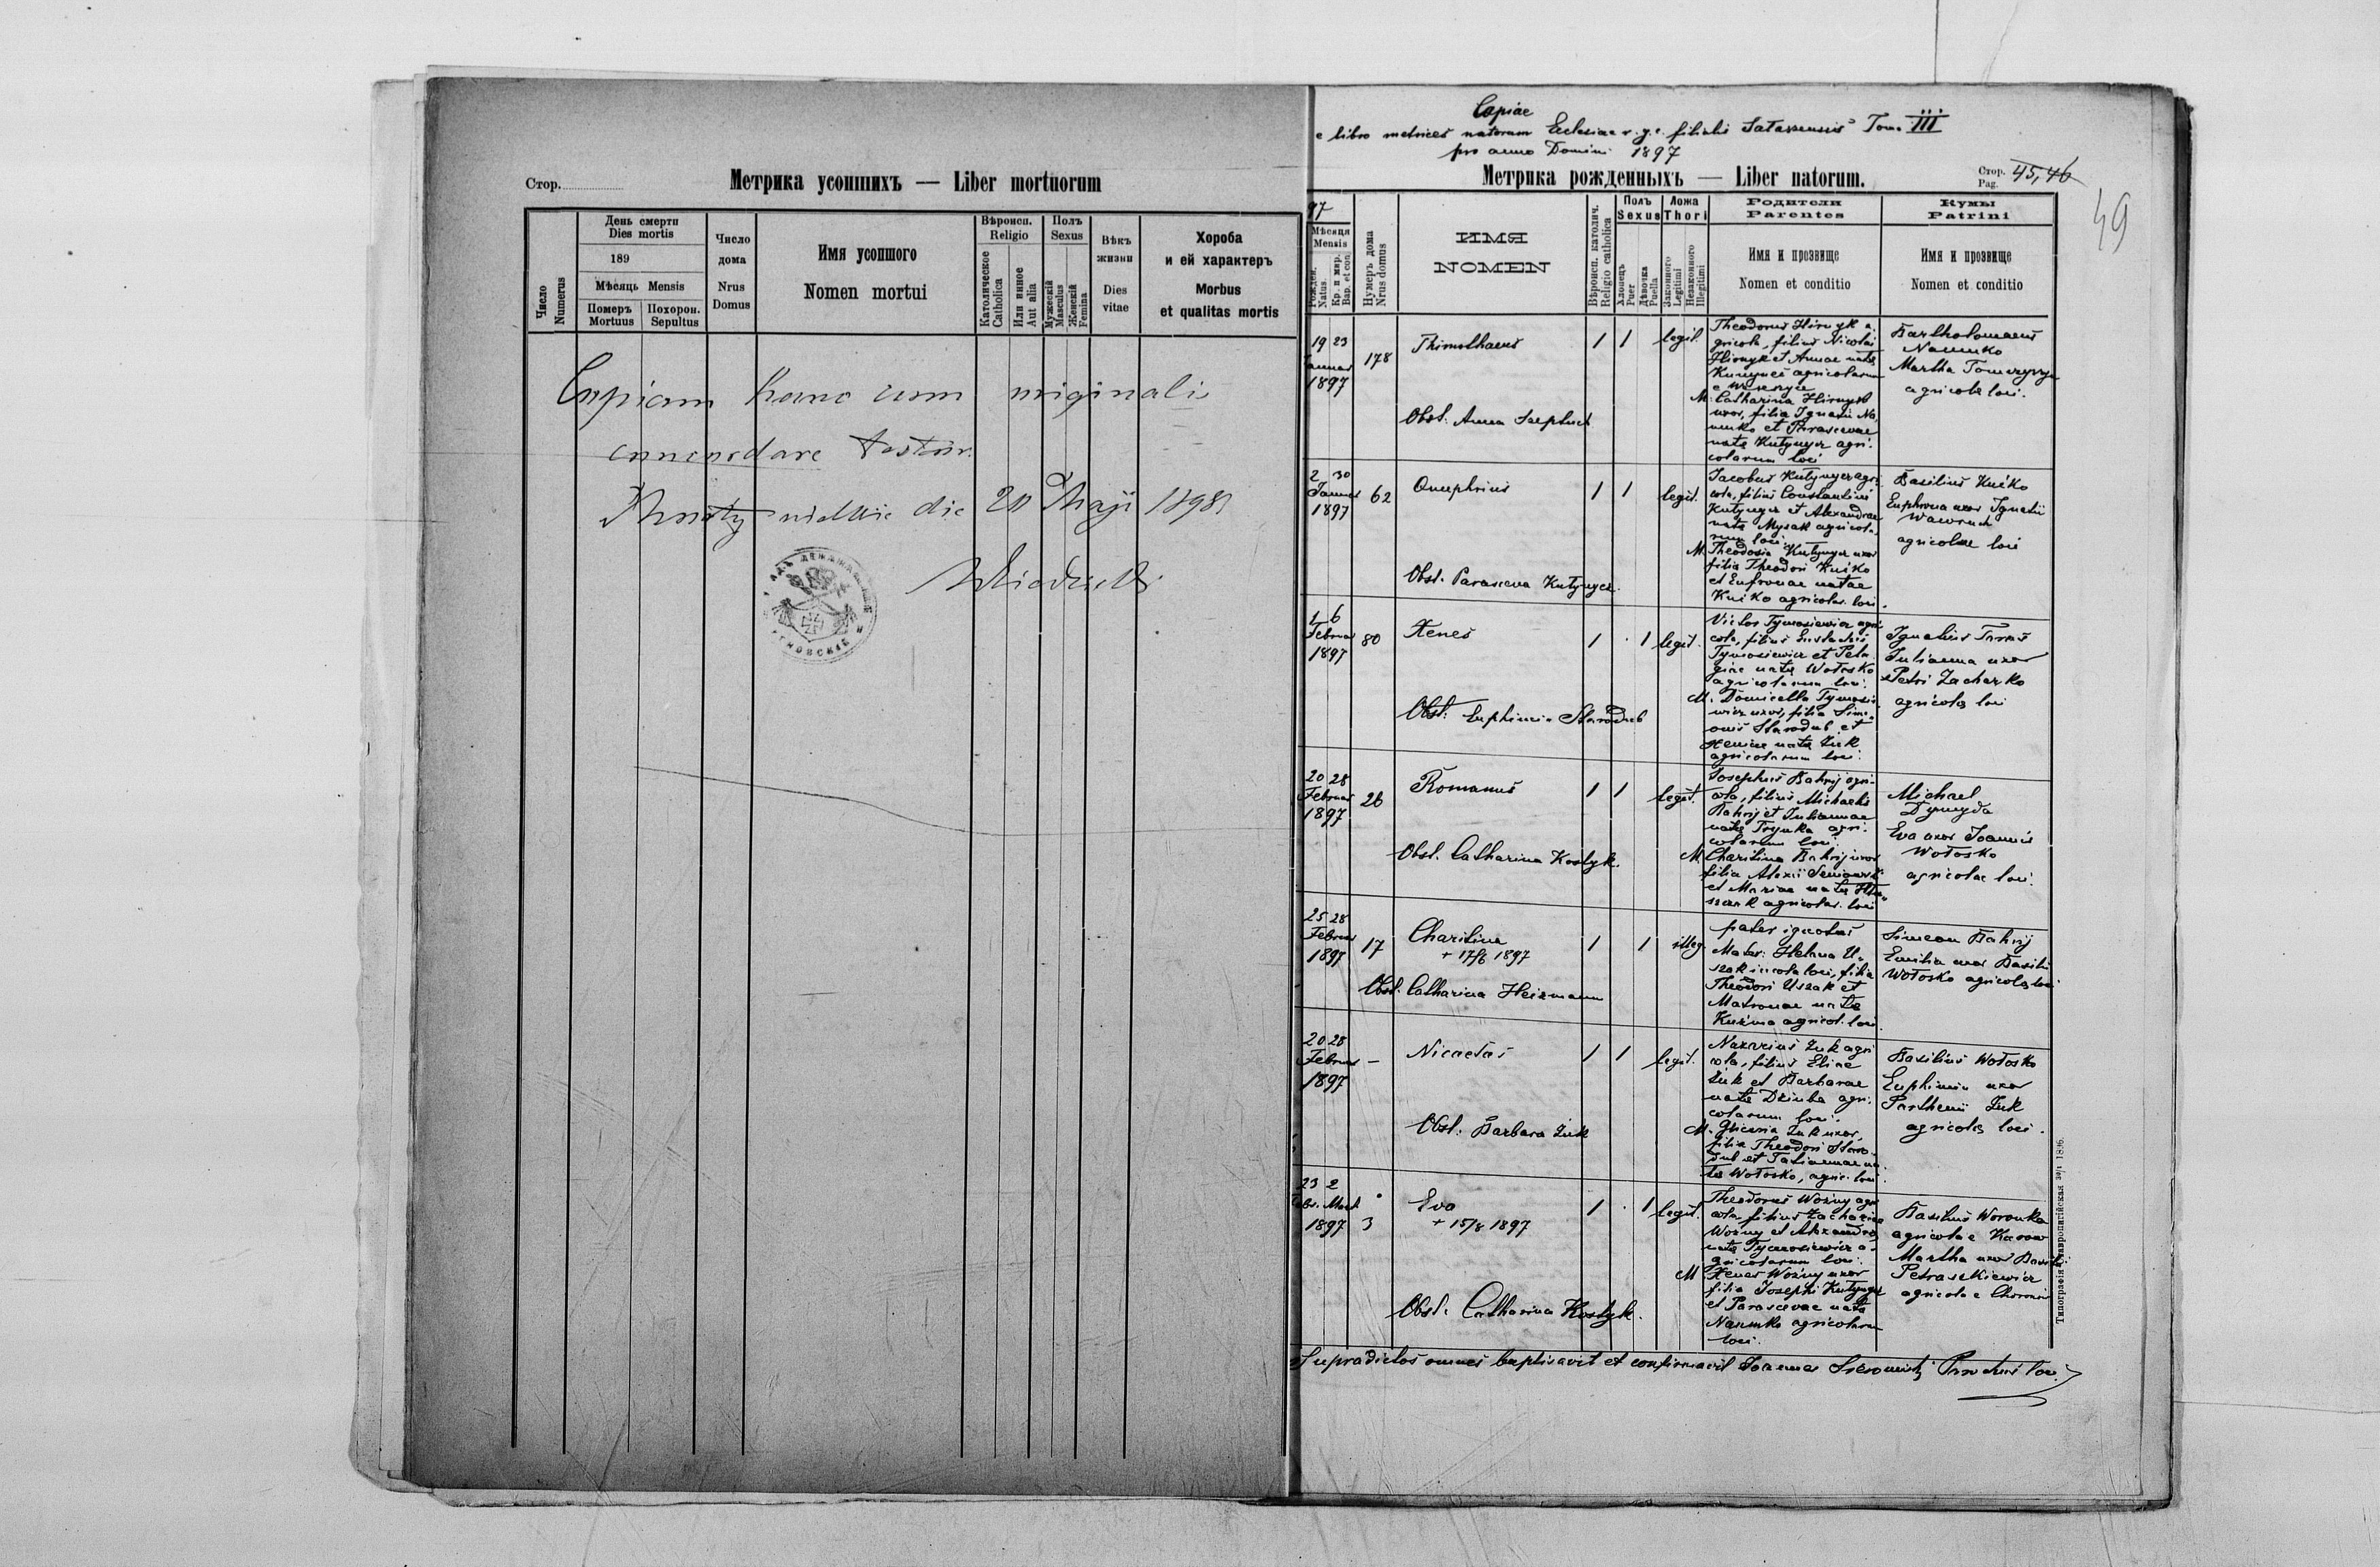 Стор.
Метрика усопшихъ — Liber mortuorum
Число
Numerus
День смерти
Dies mortis
189
Мѣсяць Mensis
Померъ
Mortuus
Похорон.
Sepultus
Число
дома
Nrus
Domus
Имя усопшого
Nomen mortui
Вѣроисп.
Religio
Католическое
Catholica
Или инное
Aut alia
Полъ
Sexus
Мужескій
Masculus
Женскій
Femina
Вѣкъ
жизни
Dies
vitae
Хороба
и ей характеръ
Morbus
et qualitas mortis
Copiam hanc cum originali
concordare testor.
die 20 Maji 1898
Copiae
e libro metrices natorum Ecclesiae r. g. c. filialis Tom. III
pro anno Domini 1897
Метрика рожденныхъ — Liber natorum.
Стор.
Pag.
45, 46
49
97
Мѣсяця
Mensis
Рожден.
Natus.
Кр. и мѵр.
Bap. et con.
Нумеръ дома
Nrus domus
ИМЯ
NOMEN
Вѣроисп. католич.
Religio catholica
Полъ
Sexus
Хлопецъ
Puer
Дѣвочка
Puella
Ложа
Thori
Законного
Legitimi
Незаконного
Illegitimi
Родители
Parentes
Имя и прозвище
Nomen et conditio
Кумы
Patrini
Имя и прозвище
Nomen et conditio
19 23
Januar
1897
178
Thimothaeus
1 1 legit.
Obst. Anna
Theodorus Hirnyk a-
gricola, filius Nicolai
Hirnyk et Annae natae
agricolarum
M. Catharina Hirnyk
uxor, filia Ignatii Na-
umko et Parascevae
natae Kutynycz agri-
colarum loci
Bartholomaeus
Naumko
Martha
agricolae loci.
2 30
Januar
1897
62
Onuphrius
1 1 legit.
Obst. Parasceva Kutynycz.
Jacobus Kutynycz agri-
cola, filius Constantini
Kutynycz et Alexandrae
natae Mysak agricola-
rum loci.
M. Theodosia Kutynycz uxor
filia Theodori Kuśko
et Eufronae natae
Kuśko agricolar. loci.
Basilius Kuśko
Euphrona uxor Ignatii
Wawruch
agricolae loci
1 6
Februar
1897
80
Xenes
1 1 legit.
Obst. Euphimia Starodub
Victor Tymosiewicz agri-
cola, filius Eustachii
Tymosiewicz et Pela-
giae natae Wołosko
agricolarum loci.
M. Domicella Tymosie-
wicz uxor, filia Sime-
onis Starodub et
Xeniae natae Żuk
agricolarum loci.
Ignatius Taras
Julianna uxor
Petri Zacharko
agricolae loci
20 28
Februar
1897
26
Romanus
1 1 legit.
Obst. Catharina Kostyk.
Josephus Bahrij agri-
cola, filius Michaelis
Bahrij et Juliannae
natae Trynka agri-
colarum loci.
M. Charitina Bahrij uxor
filia Alexii
et Mariae natae
agricolar. loci
Michael
Dymyda
Eva uxor Joannis
Wołosko
agricolae loci.
25 28
Februar
1897
17
Charitina
+ 17/6 1897
1 1 illeg.
Obst. Catharina Heizmann
pater ignotus
Mater: Helena U-
szak incola loci, filia
Theodori Uszak et
Matronae natae
Kuźma agricol. loci.
Simeon Bahrij
Emilia uxor Basilii
Wołosko agricolae loci
20 28
Februar
1897
–
Nicaetas
1 1 legit.
Obst. Barbara Żuk
Nazarius Żuk agri-
cola, filius Eliae
Żuk et Barbarae
natae Dziuba agri-
colarum loci.
M. Gliceria Żuk uxor,
filia Theodori Staro-
dub et Tatiannae na-
tae Wołosko, agric. loci.
Basilius Wołosko
Euphimia uxor
Parthenii Żuk
agricolae loci.
23 2
Febr. Mart
1897
3
Eva
+ 15/8 1897
1 1 legit.
Obst. Catharina Kostyk.
Theodorus Woźny agri-
cola, filius Zachariae
Woźny et Alexandrae
natae Tymosiewicz a-
gricolarum loci.
M. Xenes Woźny uxor
filia Josephi Kutynycz
et Parascevae natae
Naumko agricolarum
loci.
Basilius Woronka
agricola e Karow
Martha uxor Basilii
Petraszkiewicz
agricola e
Supradictos omnes baptisavit et confirmavit Joannes Parochus loci.
Типографія Ставропигійская 1896.